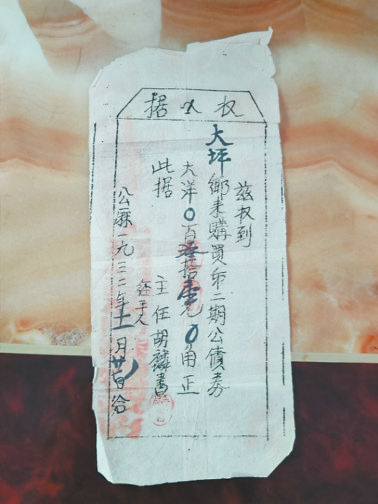 收入据
兹收到
大坪鄉来購買第二期公債券
大洋0百拾元0角正
此据
主任胡
经手人
公厯一九三二年十一月廿日给